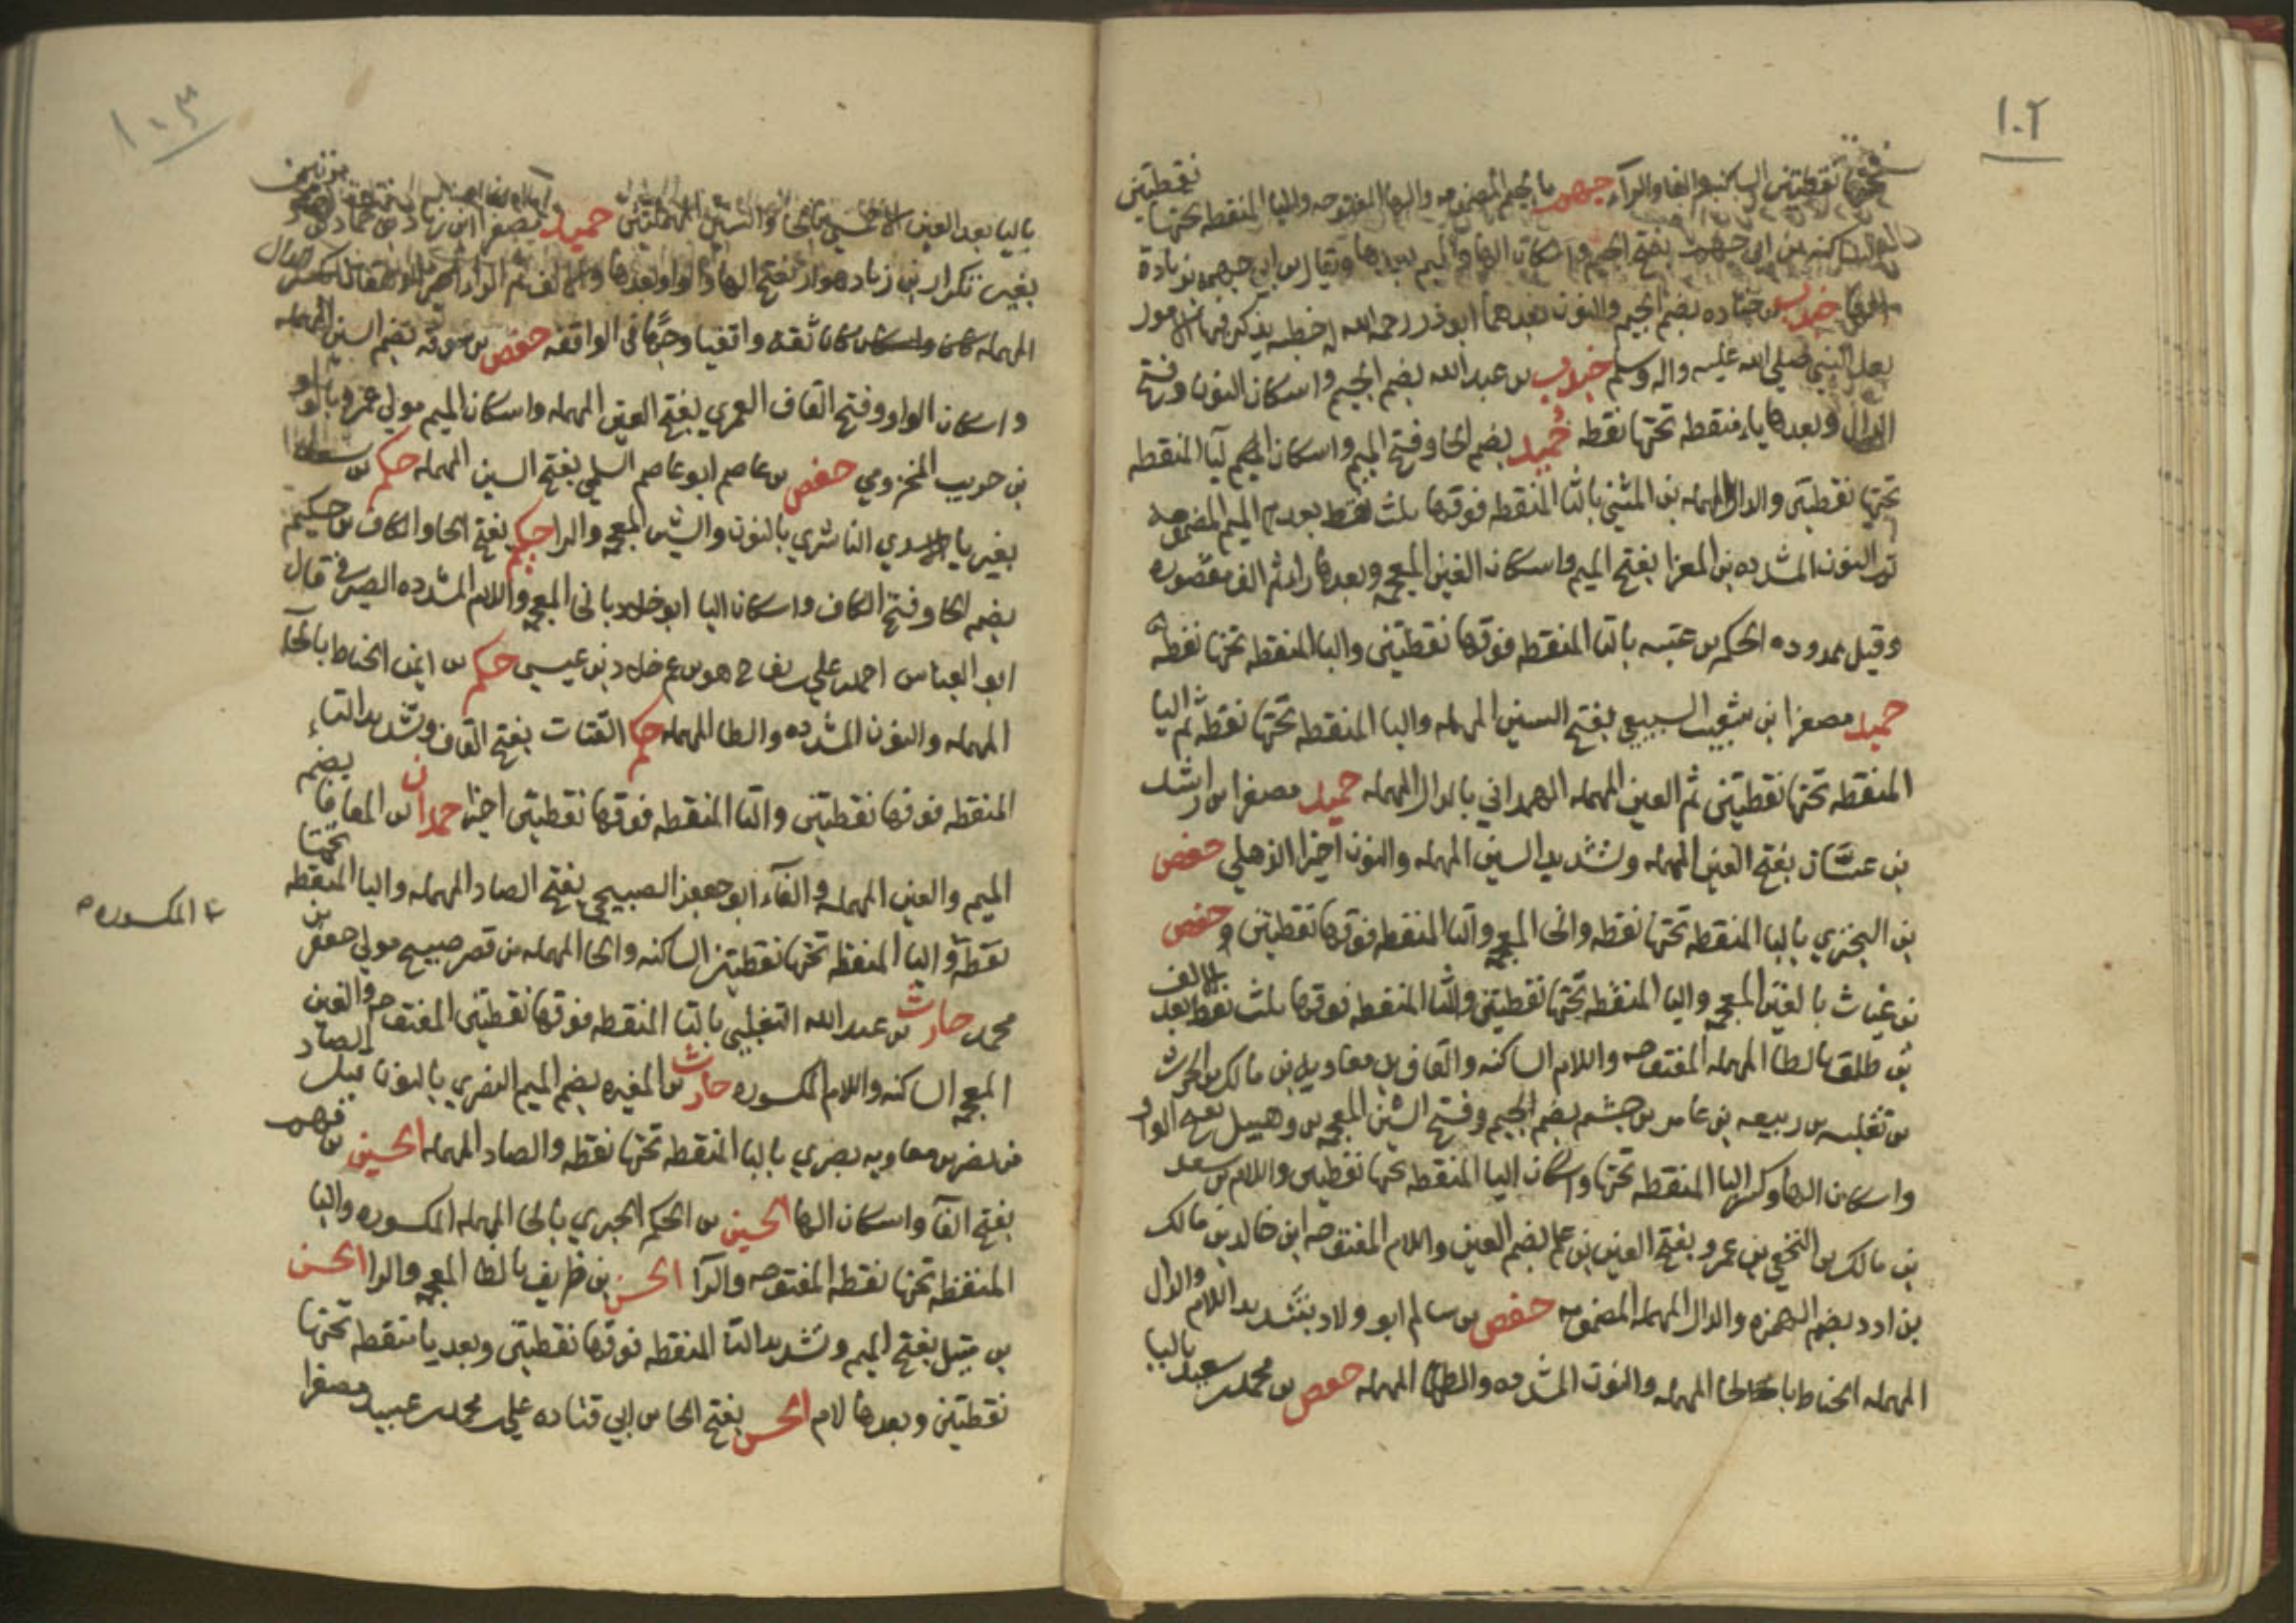 ١٠٢
تحتها نقطتين الساكنه والفا والرآء جيهم بالجيم المضمومه والها المفتوحه واليا المنقطه تحتها نقطتين
الساكنه بن ابي جهم بفتح الجيم واسكان الها والميم بعدها ويقال بن ابي جهمه بزيادة
جندب بن جناده بضم الجيم والنون بعدها ابو ذر رحمه الله له خطبه يذكر فيها الامور
بعد النبي صلي الله عليه واله وسلم جندب بن عبد الله بضم الجيم واسكان النون وفتح
الدال وبعدها باء منقطه تحتها نقطه حُميد بضم الحا وفتح الميم واسكان اليا المنقطه
تحتها نقطتين والدال المهمله بن المثني بالثا المنقطه فوقها ثلث نقط بعد الميم المضمومه
ثم النون المشدده بن المغرا بفتح الميم واسكان الغين المعجمه وبعدها را ثم الف مقصوره
وقيل ممدوده الحكم بن عتيبه بالتا المنقطه فوقها نقطتين والبا المنقطه تحتها نقطه
حميد مصغرا بن شعيب السبيعي بفتح السين المهمله والبا المنقطه تحتها نقطه ثم اليا
المنقطه تحتها نقطتين ثم العين المهمله الهمداني بالدال المهمله حميد مصغرا بن راشد
بن عسّان بفتح العين المهمله وتشديد السين المهمله والنون اخيرا الذهلي حفص
بن البختري بالبا المنقطه تحتها نقطه والخا المعجمه والتا المنقطه فوقها نقطتين وحفص
بن غياث بالغين المعجمه واليا المنقطه تحتها نقطتين والثا المنقطه فوقها ثلث نقط بعد الالف
بن طلق بالطا المهمله المفتوحه واللام الساكنه والقاف بن معاويه بن مالك بن الحرث
بن ثعلبه بن ربيعه بن عامر بن جشم بضم الجيم وفتح الشين المعجمه بن وهبيل بفتح الواو
واسكان الها وكسر البا المنقطه تحتها واسكان اليا المنقطه تحتها نقطتين واللام بن سعد
بن مالك بن النخعي بن عمرو بفتح العين بن علم بضم العين واللام المفتوحه ابن خالد بن مالك
بن ادد بضم الهمزه والدال المهمله المضمومه حفص بن سالم ابو ولاد بتشديد اللام والدال
المهمله الحناط بالحا المهمله والنون المشدده والطا المهمله حفص بن محمد سعيد باليا
١٠٣
باليا بعد العين الاحمسي بالحا والسين المهملتين حميد مصغرا ابن زياد بن حماد
بغير تكرار بن زياد هوار بفتح الها والواو بعدها والالف ثم الرا اخيرا الدهقان بكسر الدال
المهمله كان ثقه واقفيا وجها في الواقفه حفص بن سوقه بضم السين المهمله
واسكان الواو وفتح القاف العمري بفتح العين المهمله واسكان الميم مولي عمرو بالواو
بن حريب المخزومي حفص بن عاصم ابو عاصم السلمي بفتح السين المهمله حكم بن سعد
بغير يا الاسدي الناشري بالنون والشين المعجمه والرا حكم بفتح الحا والكاف بن حكيم
بضم الحا وفتح الكاف واسكان اليا ابو خلاد بالخا المعجمه واللام المشدده الصيرفي قال
ابو العباس احمد علي هو بن عم خلاد بن عيسي حكم بن ايمن الحناط بالحا
المهمله والنون المشدده والطا المهمله حكم القتات بفتح القاف وتشديد التاء
المنقطه فوقها نقطتين والتا المنقطه فوقها نقطتين اخيرا حمدان بن المعافا بضم
الميم والعين المهمله والفآء ابو جعفر الصبيحي بفتح الصاد المهمله والبا المنقطه تحتها
نقطه واليا المنقطه تحتها نقطتين الساكنه والحا المهمله من قصر صبيح مولي جعفر بن
محمد حارث بن عبد الله التغلبي بالتا المنقطه فوقها نقطتين المفتوحه والغين
المعجمه الساكنه واللام المكسوره حارث بن المغيره بضم الميم النصري بالنون قبل الصاد
من نصر بن معاويه بصري بالبا المنقطه تحتها نقطه والصاد المهمله الحسين بن فهم
بفتح الفآ واسكان الها الحسين بن الحكم الحبري بالحا المهمله المكسوره والبا
المنقطه تحتها نقطه المفتوحه والرآ الحسن بن ظريف بالظا المعجمه والرا الحسن
بن متيل بفتح الميم وتشديد التا المنقطه فوقها نقطتين وبعد يا منقطه تحتها
نقطتين وبعدها لام الحسن بفتح الحا بن ابي قتاده علي بن محمد بن عبيد مصغرا
المكسوره